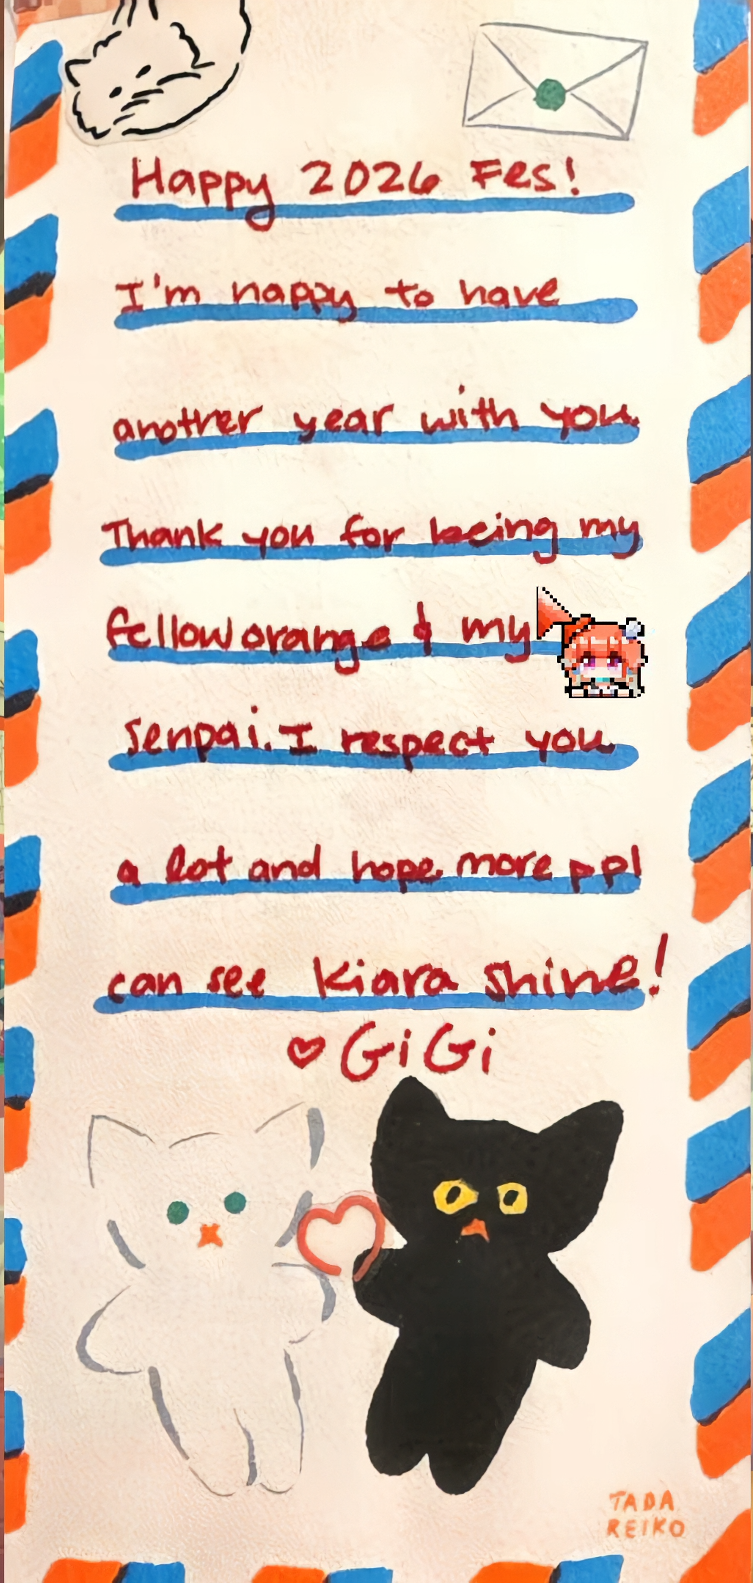 Happy 2026 Fes!
I'm happy to have
another year with you.
Thank you for being my
fellow orange & my
senpai. I respect you
a lot and hope more ppl
can see Kiara shine!
♡ GiGi
TADA
REIKO